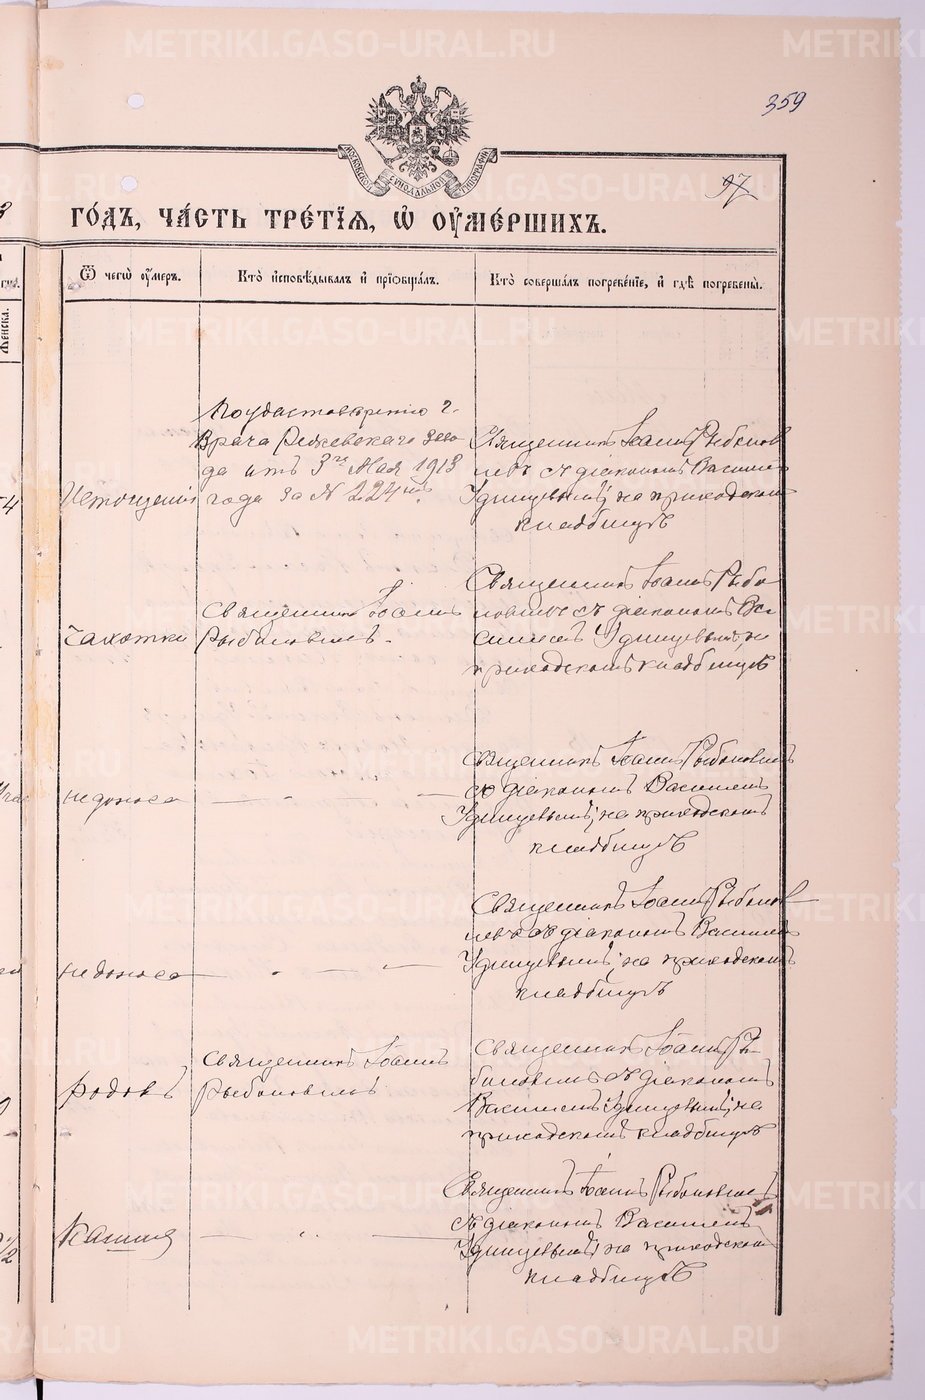 359
97
МОСКОВСКОЙ СѴНОДАЛЬНОЙ ТИПОГРАФІИ
ГО́ДЪ, ЧА́СТЬ ТРЕ́ТІѦ, Ѡ҆ ОУ҆МЕ́РШИХЪ.
Ѿ чегѡ̀ оу҆́меръ.
Кто̀ и҆сповѣ́дывалъ и҆ прїѻбща́лъ.
Кто̀ соверша́лъ погребе́нїе, и҆ гдѣ̀ погребены̀.
Же́нска.
По удостоверению г.
Врача Режевскаго Заво
да отъ 3го Мая 1913
года за № 224ым.
Истощенія
Священникъ Іоаннъ Рыболов
левъ съ діакономъ Василіем
Удинцевымъ; на приходском
кладбищѣ
Чахотки
Священник Іоанн
Рыболовлев.
Священникъ Іоаннъ Рыбо
ловлевъ съ діакономъ Ва
силіемъ Удинцевым; на
приходскомъ кладбищѣ
недоноса
Священникъ Іоаннъ Рыболовлев
съ діакономъ Василіемъ
Удинцевымъ; на приходском
кладбищѣ
недоноса
Священникъ Іоаннъ Рыболов
левъ съ діакономъ Василіем
Удинцевымъ; на приходском
кладбищѣ
Родовъ
Священникъ Іоаннъ
Рыболовлев
Священникъ Іоаннъ Ры-
боловлев съ діакономъ
Василіемъ Удинцевым; на
приходскомъ кладбищѣ
Кашля
Священникъ Іоанн Рыболовлев
съ діакономъ Василіемъ
Удинцевымъ; на приходском
кладбищѣ
METRIKI.GASO-URAL.RU